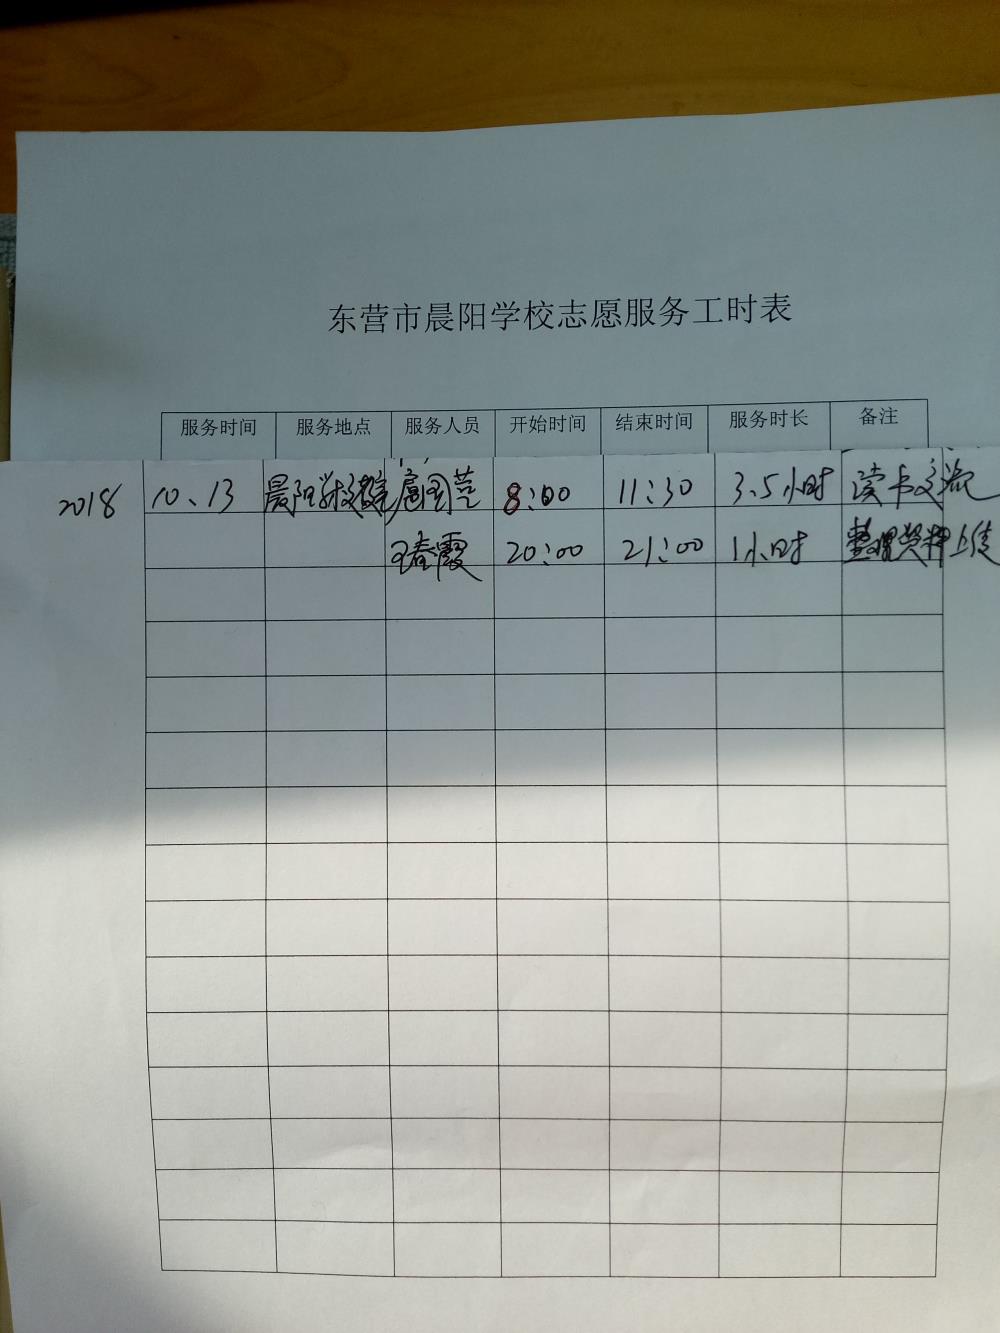 东营市晨阳学校志愿服务工时表
服务时间 服务地点 服务人员 开始时间 结束时间 服务时长 备注
2018 10、13 晨阳学校 8:00 11:30 3.5小时 读卡交流
王春霞 20:00 21:00 1小时 整理资料上传